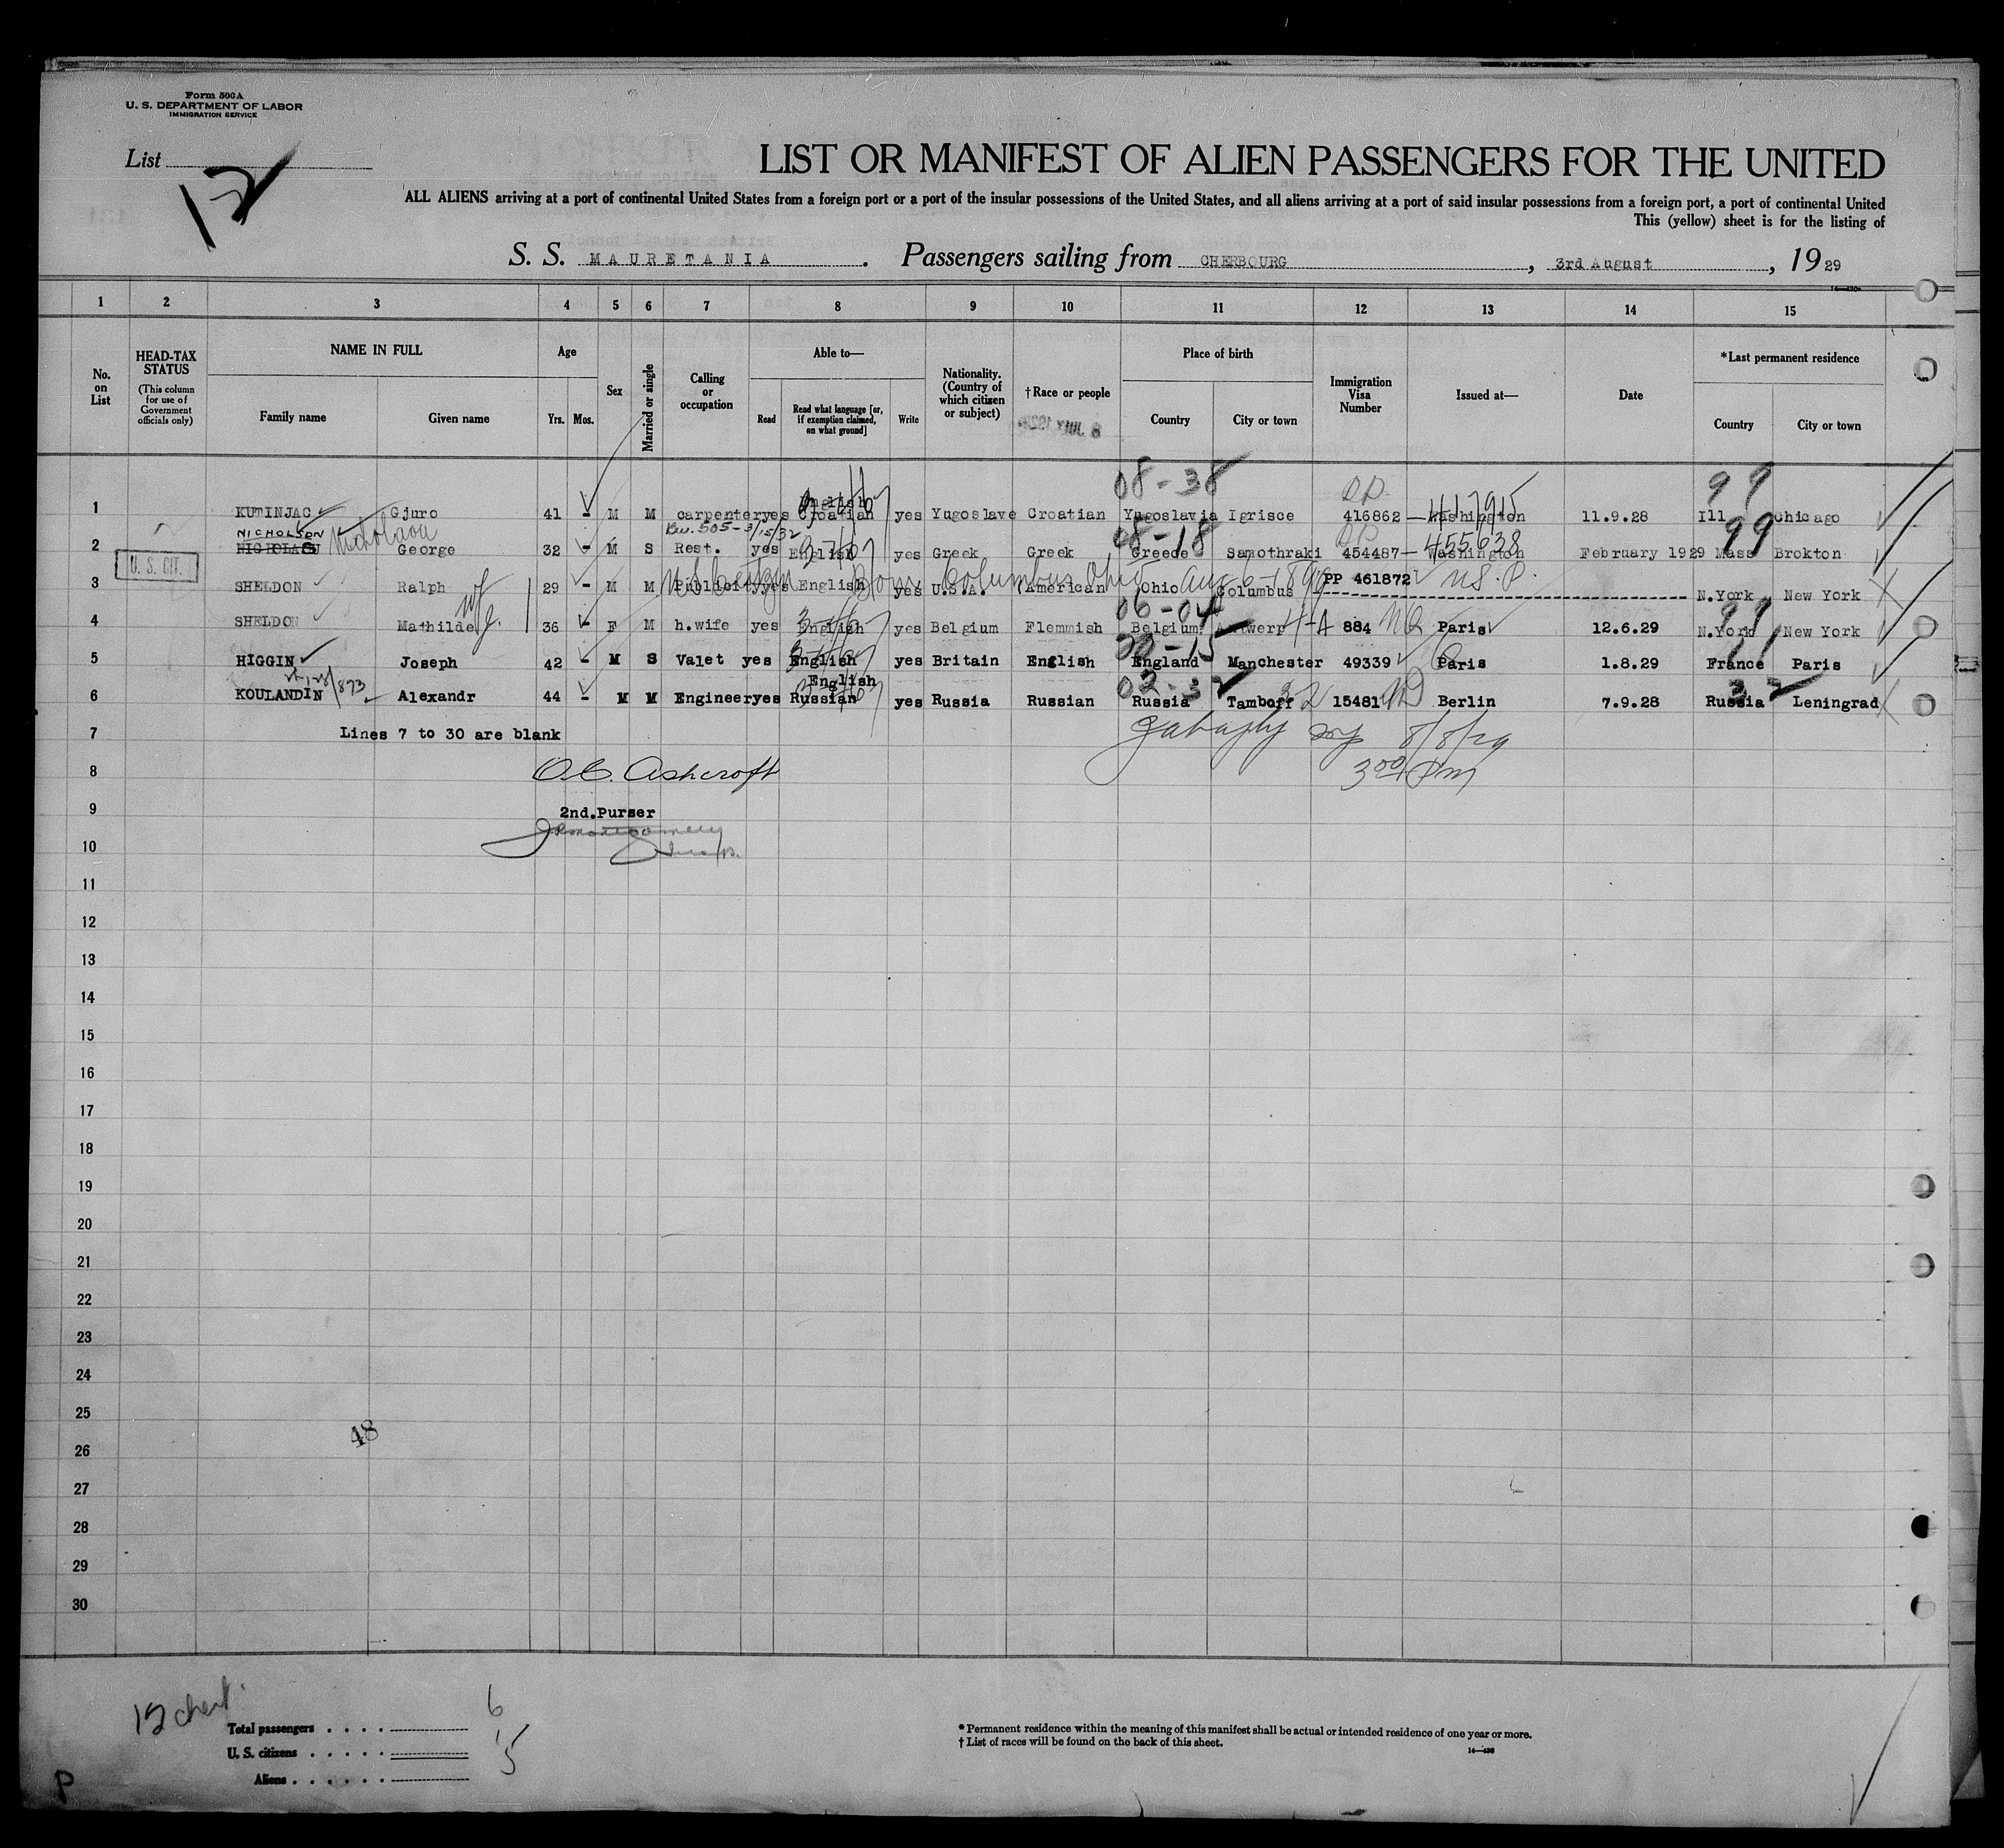 Form 500A
U. S. DEPARTMENT OF LABOR
IMMIGRATION SERVICE
List
12
LIST OR MANIFEST OF ALIEN PASSENGERS FOR THE UNITED
ALL ALIENS arriving at a port of continental United States from a foreign port or a port of the insular possessions of the United States, and all aliens arriving at a port of said insular possessions from a foreign port, a port of continental United
This (yellow) sheet is for the listing of
S. S. MAURETANIA. Passengers sailing from CHERBOURG, 3rd August, 1929
1 2 3 4 5 6 7 8 9 10 11 12 13 14 15
No. on List
HEAD-TAX STATUS
(This column for use of Government officials only)
NAME IN FULL
Family name Given name
Age
Yrs. Mos.
Sex
Married or single
Calling or occupation
Able to—
Read
Read what language [or, if exemption claimed, on what ground]
Write
Nationality. (Country of which citizen or subject)
†Race or people
Place of birth
Country City or town
Immigration Visa Number
Issued at—
Date
*Last permanent residence
Country City or town
08-38 99
417915
1 KUTINJAC Gjuro 41 - M M carpenter yes English Croatian yes Yugoslave Croatian Yugoslavia Igrisce 416862 Washington 11.9.28 Ill Chicago
NICHOLSON Nicholaou 08-18 455638 99
2 George 32 - M S Rest. yes English yes Greek Greek Greece Samothraki 454487 Washington February 1929 Mass Brokton
U. S. CIT.
3 SHELDON Ralph 29 - M M Publicity yes English yes U.S.A. American Ohio Columbus PP 461872 N.York New York
US citizen born Columbus Ohio Aug 6-1899 U.S.P.
06-04 99
4 SHELDON Mathilde wfe. 36 - F M h.wife yes English yes Belgium Flemmish Belgium Antwerp 884 Paris 12.6.29 N.York New York
5 HIGGIN Joseph 42 - M S Valet yes English yes Britain English England Manchester 49339 Paris 1.8.29 France Paris
02-32 32
6 KOULANDIN Alexandr 44 - M M Engineer yes English Russian yes Russia Russian Russia Tamboff 15481 Berlin 7.9.28 Russia Leningrad
7 Lines 7 to 30 are blank
8/8/29
8 O.C. Ashcroft
3 00 PM
9 2nd. Purser
10
11
12
13
14
15
16
17
18
19
20
21
22
23
24
25
48
26
27
28
29
30
Total passengers 6
U. S. citizens 1
Aliens 5
* Permanent residence within the meaning of this manifest shall be actual or intended residence of one year or more.
† List of races will be found on the back of this sheet.
P